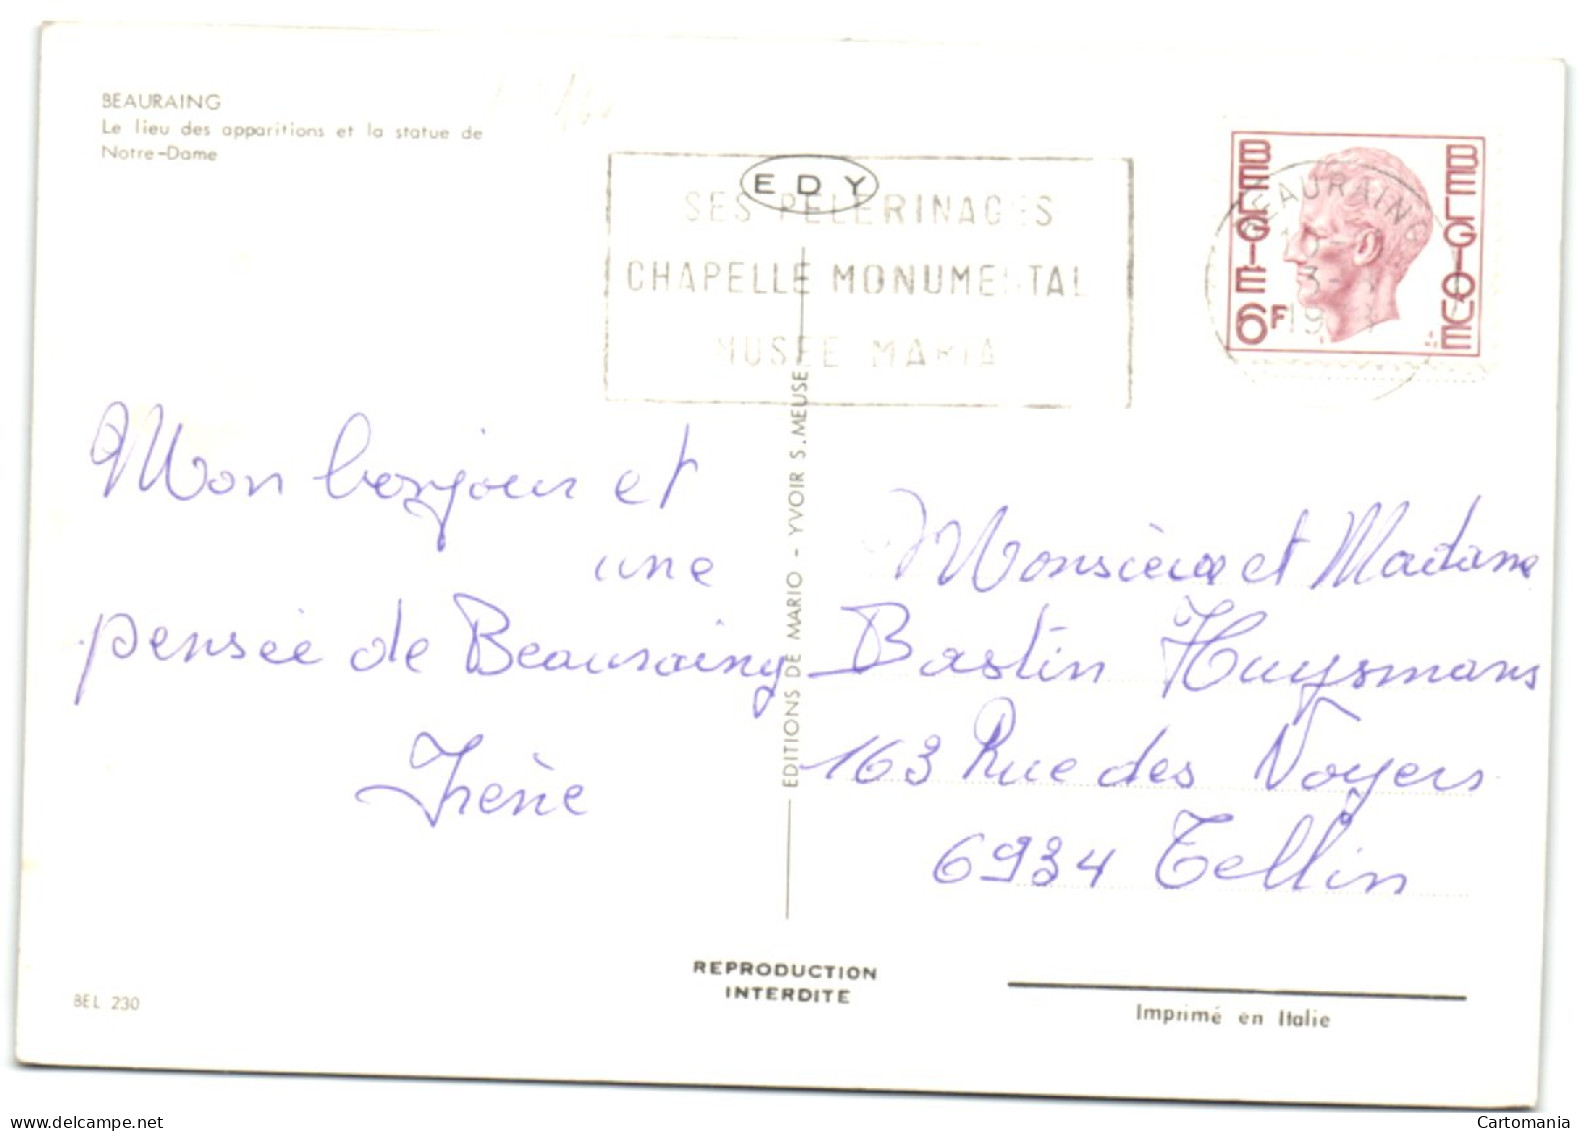 BEAURAING
Le lieu des apparitions et la statue de
Notre-Dame
EDY
SES PELERINAGES
CHAPELLE MONUMENTAL
MUSEE MARIA
BELGIË
BELGIQUE
6F
BEAURAING
Mon bonjour et
une
pensée de Beauraing
Irène
EDITIONS DE MARIO - YVOIR S. MEUSE
Monsieur et Madame
Bastin Huysmans
163 Rue des Noyers
6934 Tellin
REPRODUCTION
INTERDITE
BEL 230
Imprimé en Italie
Cartomania
www.delcampe.net